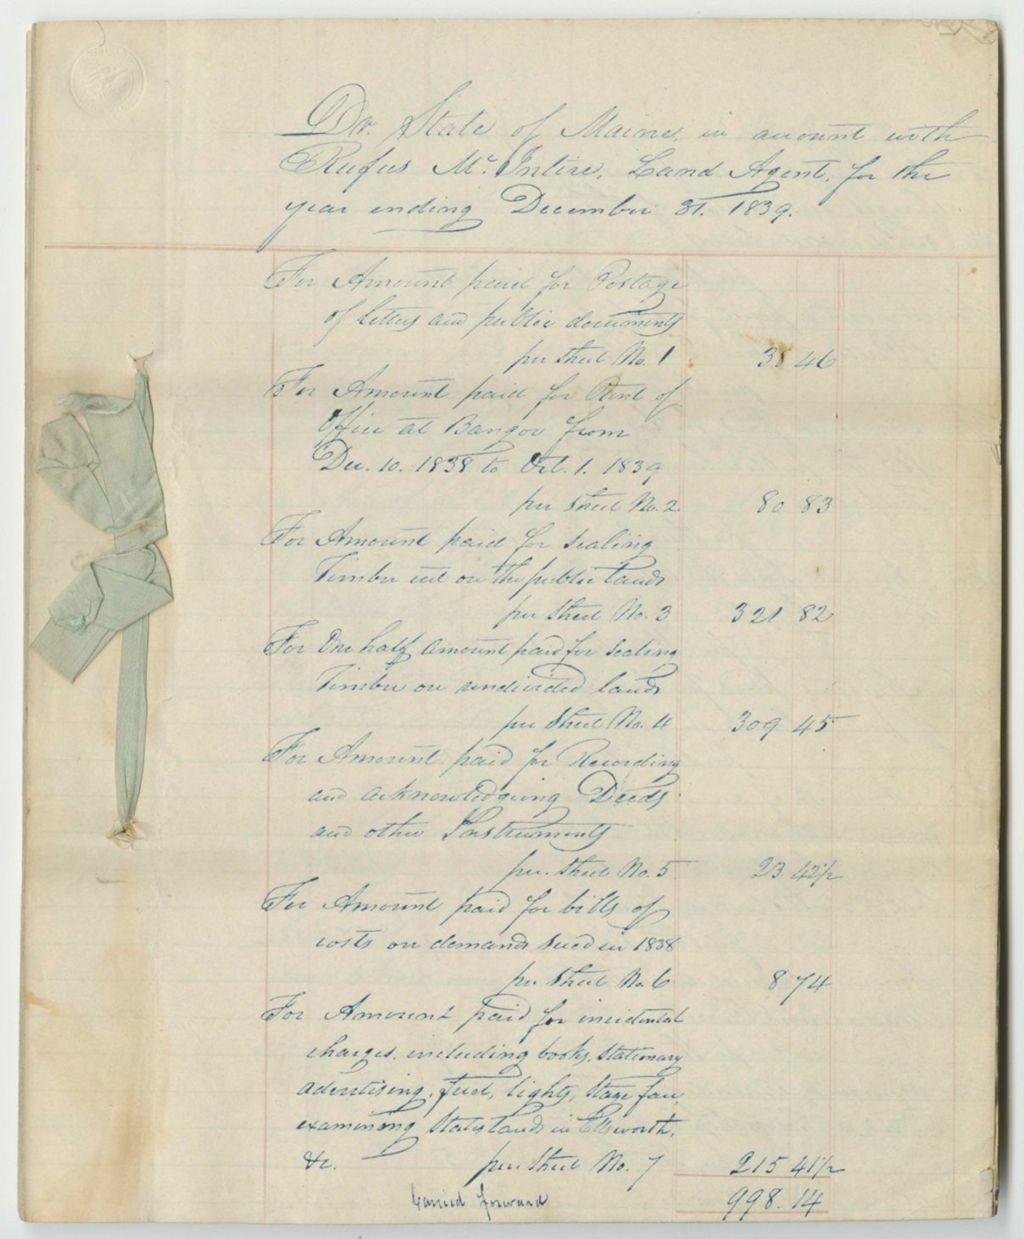 Dr. State of Maine, in account with
Rufus Mc.Intire, Land Agent, for the
year ending December 31. 1839.
For Amount paid for Postage
of letters and public documents
per sheet No. 1 38 46
For Amount paid for Rent of
Office at Bangor from
Dec. 10. 1838 to Oct. 1. 1839
per sheet No. 2. 80 83
For Amount paid for scaling
Timber cut on the public lands
per sheet No. 3 321 82
For One half amount paid for scaling
Timber on undivided lands
per sheet No. 4 309 45
For Amount paid for Recording
and acknowledging Deeds
and other Instruments
per. sheet No. 5 23 42½
For Amount paid for bills of
costs on demands sued in 1838
per sheet No. 6 8 74
For Amount paid for incidental
charges, including books, stationary
advertising, fuel, lights, stage fare,
examining State lands in Ellsworth,
&c. per. sheet No. 7 215 41½
Carried forward 998.14